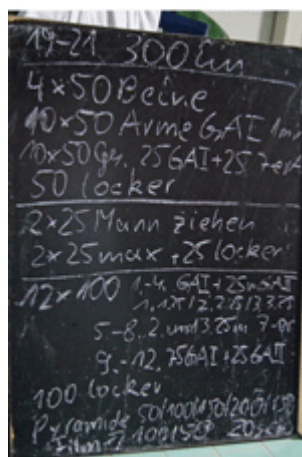 19-21 300 Ein
4x50 Beine
10x50 Arme GAI 1min
10x50 Ges. 25GAI+25 7er
50 locker
2x25 Mann ziehen
2x25max +25 locker
12x100 1.-4. GAI +25m GAII
5-8. 2. und 3. 25m 7-er
9.-12. 75GAI+25GAII
100 locker
Pyramide 50/100/150/200/150
100/50 20sek